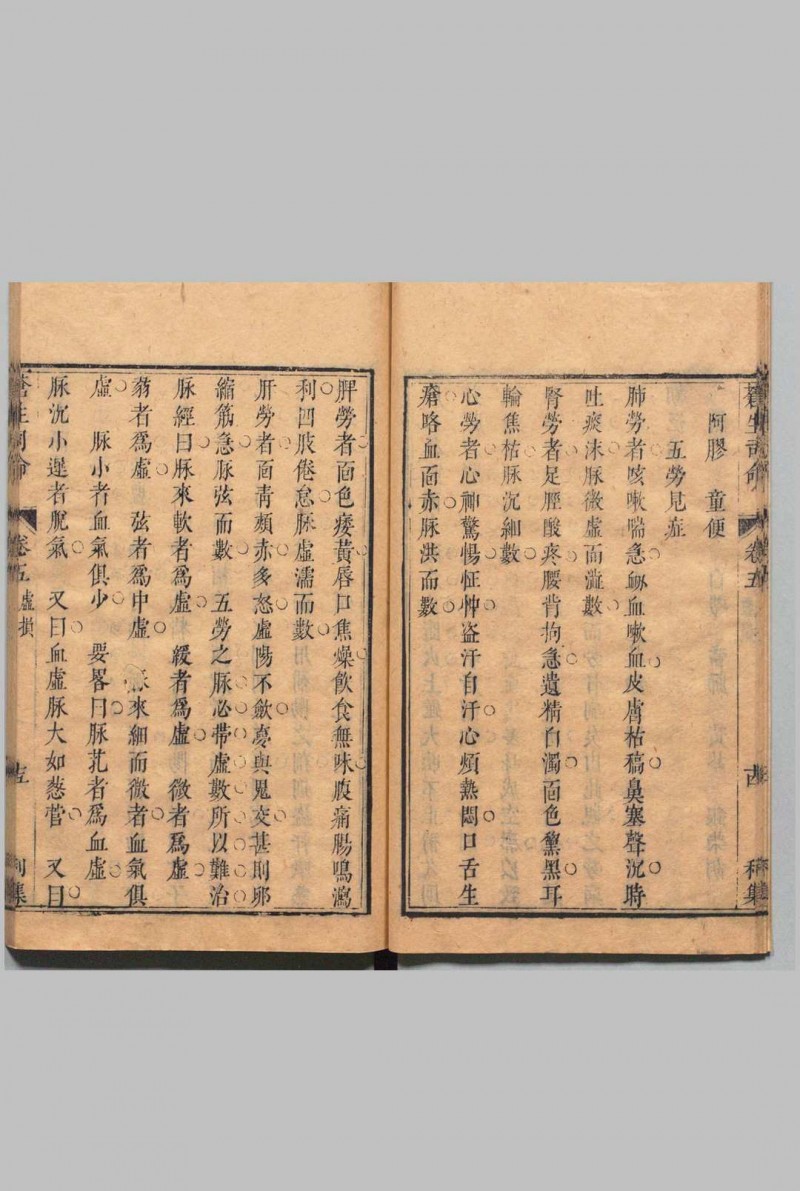 蒼生司命 卷五 十四 利集
阿膠 童便
五勞見症
肺勞者咳嗽喘急衂血嗽血皮膚枯稿鼻塞聲沉時
吐痰沫脉微虛而澁數
腎勞者足脛酸疼腰背拘急遺精白濁面色黧黑耳
輪焦枯脉沉細數
心勞者心神驚惕怔忡盗汗自汗心煩熱悶口舌生
瘡咯血面赤脉洪而數
脾勞者面色痿黃唇口焦燥飲食無味腹痛腸鳴瀉
利四肢倦怠脉虛濡而數
肝勞者面青頰赤多怒虛陽不斂夢與鬼交甚則卵
縮筋急脉弦而數 五勞之脉必帶虛數所以難治
脉經曰脉來軟者爲虛 緩者爲虛 微者爲虛
芤者爲虛 弦者爲中虛 來細而微者血氣俱
虛 脉小者血氣俱少 要畧曰脉芤者爲血虛
脉沉小遲者脫氣 又曰血虛脉大如葱菅 又曰
蒼生司命 卷五 虛損 利集